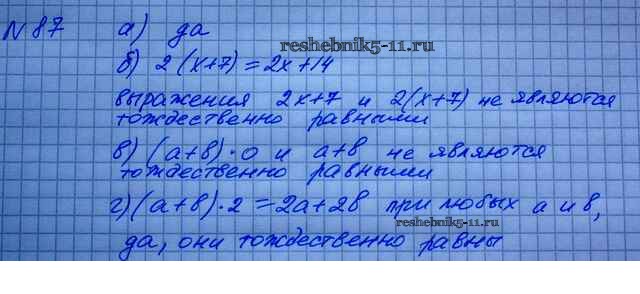 №87 а) да
reshebnik5-11.ru
б) 2(x+7)=2x+14
выражения 2x+7 и 2(x+7) не являются
тождественно равными
в) (a+b)·0 и a+b не являются
тождественно равными
г) (a+b)·2=2a+2b при любых a и b,
reshebnik5-11.ru
да, они тождественно равны